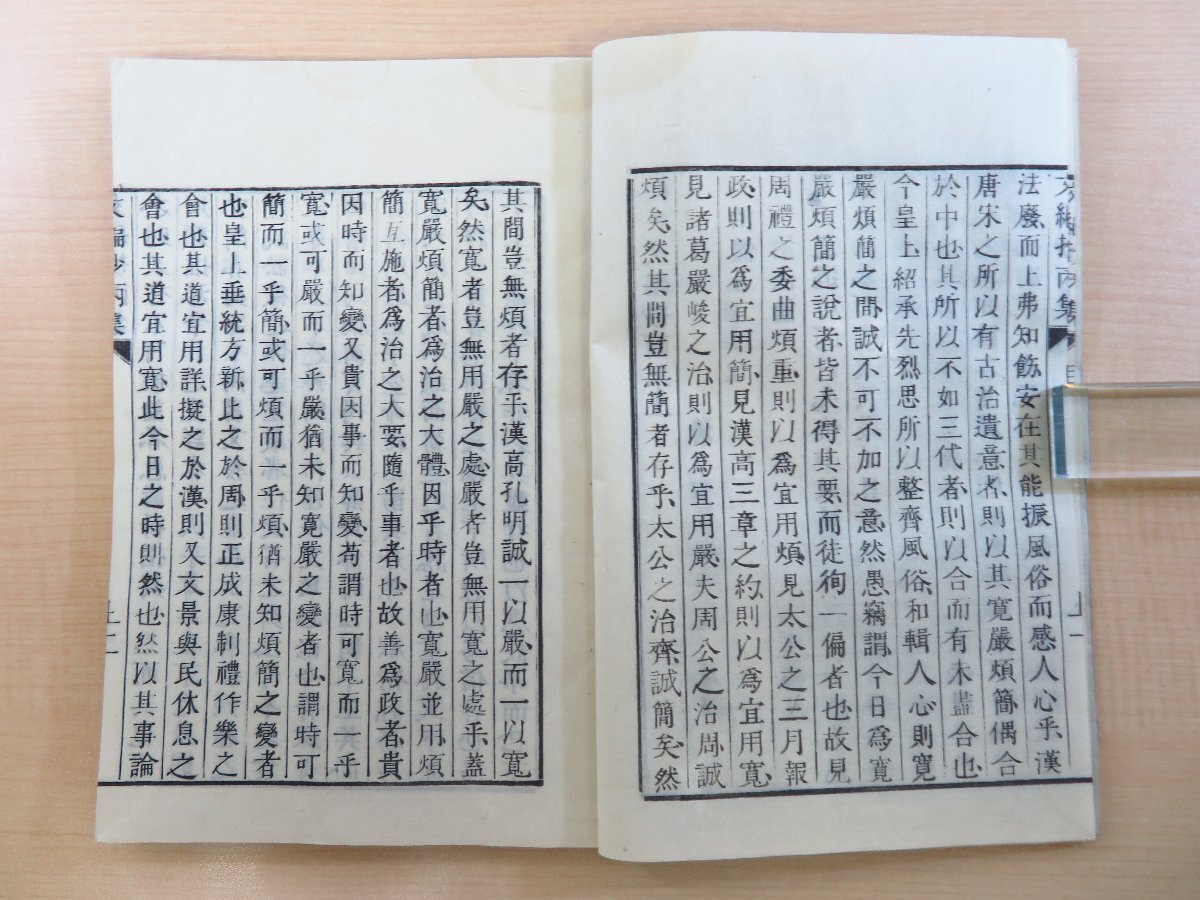 法廢而上弗知飭安在其能振風俗而感人心乎漢
唐宋之所以有古治遺意者則以其寬嚴煩簡偶合
於中也其所以不如三代者則以合而有未盡合也
今皇上紹承先烈思所以整齊風俗和輯人心則寬
嚴煩簡之間誠不可不加之意然愚竊謂今日為寬
嚴煩簡之說者皆未得其要而徒徇一偏者也故見
周禮之委曲煩重則以為宜用煩見太公之三月報
政則以為宜用簡見漢高三章之約則以為宜用寬
見諸葛嚴峻之治則以為宜用嚴夫周公之治周誠
煩矣然其間豈無簡者存乎太公之治齊誠簡矣然
其間豈無煩者存乎漢高孔明誠一以嚴而一以寬
矣然寬者豈無用嚴之處嚴者豈無用寬之處乎蓋
寬嚴煩簡者為治之大體因乎時者也寬嚴並用煩
簡互施者為治之大要隨乎事者也故善為政者貴
因時而知變又貴因事而知變苟謂時可寬而一乎
寬或可嚴而一乎嚴猶未知寬嚴之變者也謂時可
簡而一乎簡或可煩而一乎煩猶未知煩簡之變者
也皇上垂統方新比之於周則正成康制禮作樂之
會也其道宜用詳擬之於漢則又文景與民休息之
會也其道宜用寬此今日之時則然也然以其事論
文編抄丙集
十二